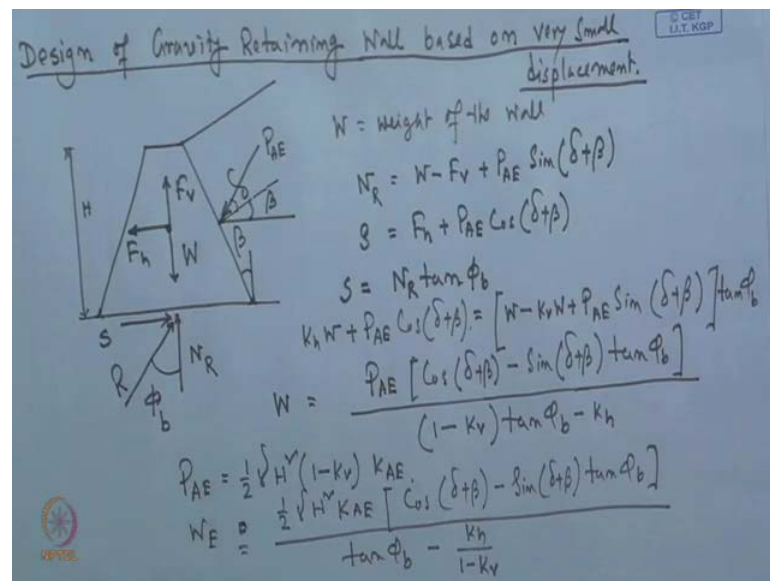 © CET
I.I.T. KGP
Design of Gravity Retaining Wall based on very small
displacement.
W = weight of the wall
N_R = W - F_v + P_AE Sin(δ+β)
S = F_h + P_AE Cos(δ+β)
S = N_R tan φ_b
k_h W + P_AE Cos(δ+β) = [W - k_v W + P_AE Sin(δ+β)] tan φ_b
W = P_AE [Cos(δ+β) - Sin(δ+β) tan φ_b] / (1 - k_v) tan φ_b - k_h
P_AE = 1/2 γ H² (1 - k_v) K_AE
W_E = 1/2 γ H² K_AE [Cos(δ+β) - Sin(δ+β) tan φ_b] / tan φ_b - k_h/(1 - k_v)
H
P_AE
δ
β
β
F_v
F_h
W
S
R
N_R
φ_b
NPTEL